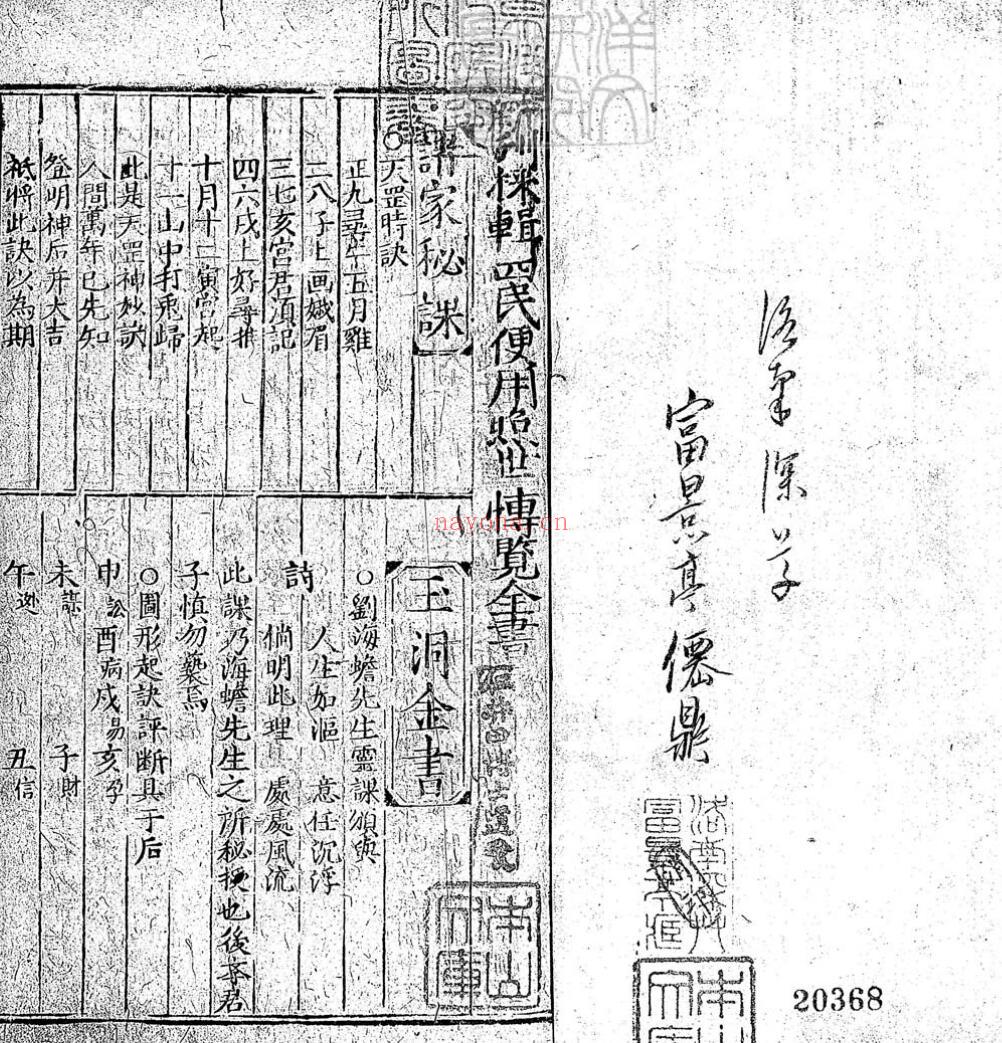 富景亭 僊鼎
輯四民便用照世博覽全書
諸家秘課
○天罡時訣
正九尋牛五月雞
二八子上画娥眉
三七亥宮君須記
四六戌上好尋推
十月十二寅宮起
十一山中打乘歸
此是天罡神妙訣
人間萬年已先知
登明神后并大吉
祇將此訣以為期
玉洞金書
○劉海蟾先生靈課頌與
人生如漚 意任沉浮
詩
倘明此理 處處風流
此課乃海蟾先生之所秘授也後孝君
子慎勿褻焉
○圖形起訣評断具于后
申訟酉病戌易亥孕
未謀 子財
午 丑信
nayona.cn
20368